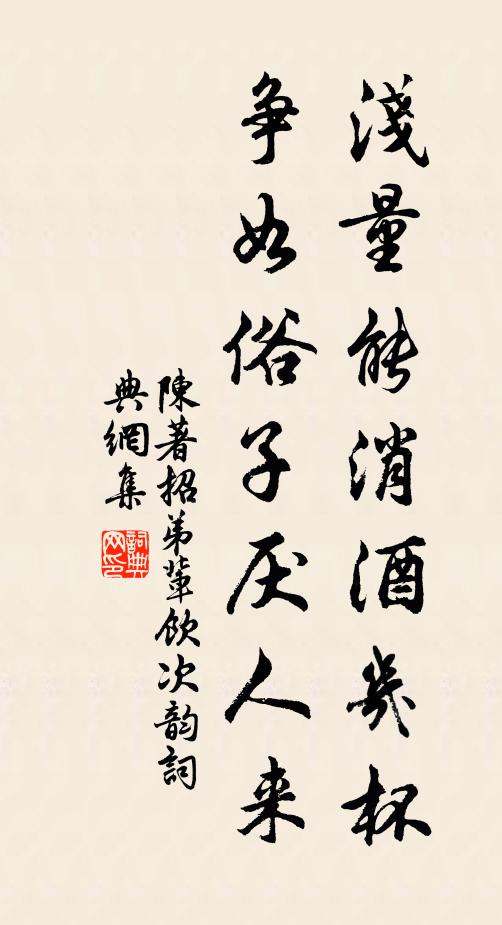 淺量能消酒幾杯
争如俗子厌人来
陳著招弟輩飲次韵詞
典網集
詞典网印